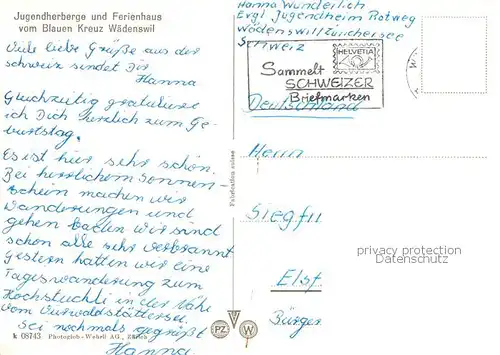 Jugendherberge und Ferienhaus
vom Blauen Kreuz Wädenswil
Viele liebe Grüße aus der
Schweiz sindet Dir
Hanna
Gleichzeitig gratuliere
ich Dich herzlich zum Ge-
burtstag.
Es ist hier sehr schön.
Bei herrlichem Sonnen-
schein machen wir
Wanderungen und
gehen baden wir sind
schon alle sehr verbrannt
Gestern hatten wir eine
Tageswanderung zum
Hochstuckli in der Nähe
vom Vurwaldstättersee.
Sei nochmals gegrüßt
Hanna
k 08743 Photoglob-Wehrli AG., Zürich
Fabrication suisse
PZ W
Hanna Wunderlich
Evgl Jugendheim Rotweg
Wädenswil Zürichersee
Schweiz
HELVETIA
Sammelt
SCHWEIZER
Briefmarken
Deutschland
Herrn
Siegfri
privacy protection
Datenschutz
Elsf
Bürger